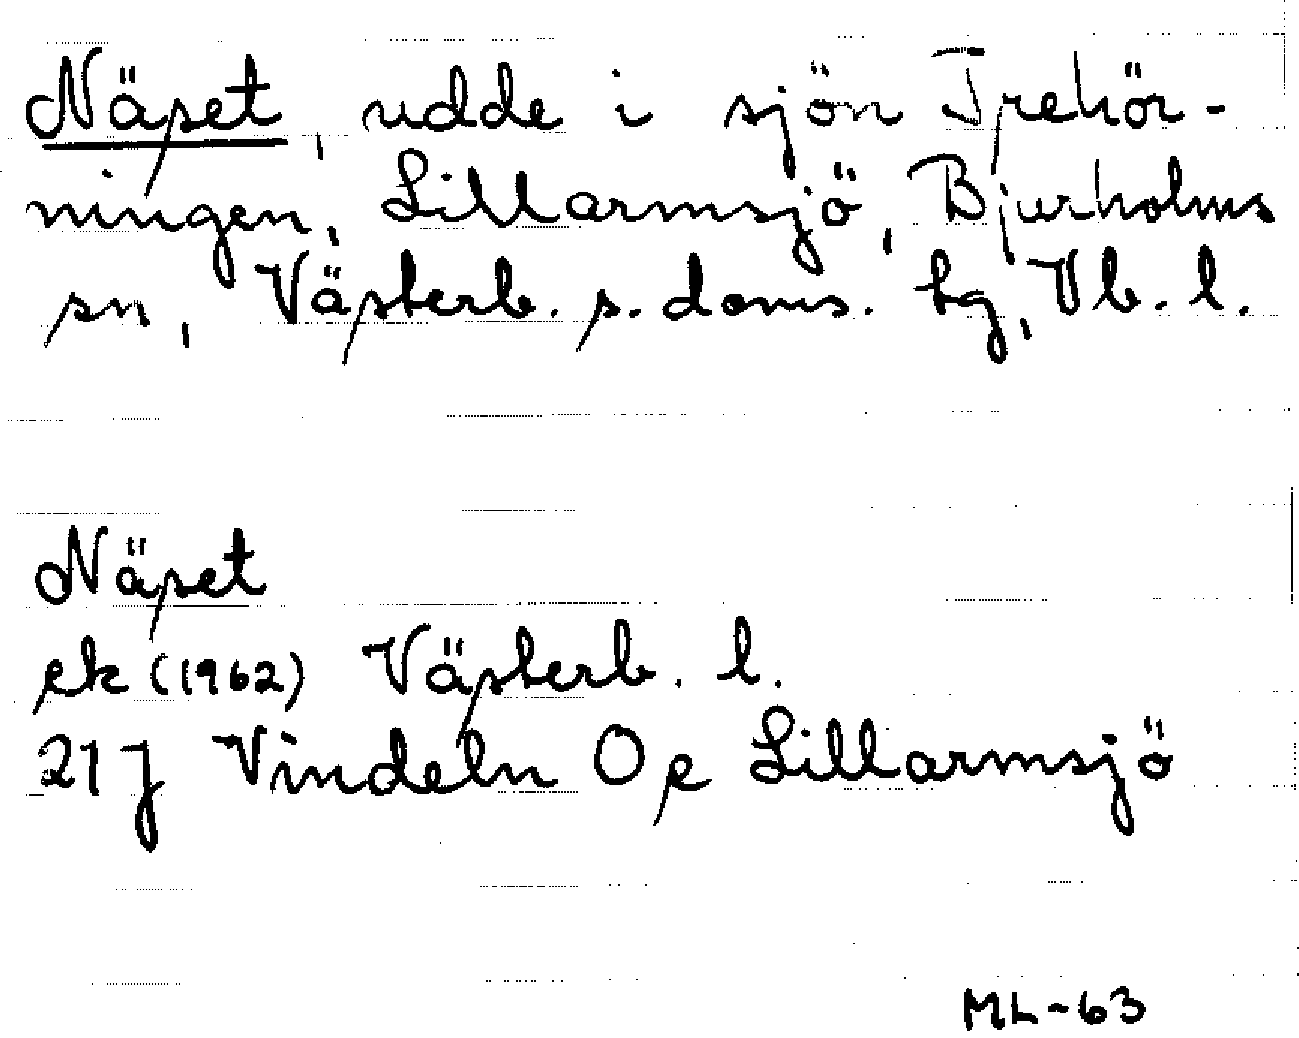 Näset, udde i sjön Trehör-
ningen, Lillarmsjö, Bjurholms
sn, Västerb. s. doms. tg, Vb. l.
Näset
ek (1962) Västerb. l.
21 J Vindeln Oe Lillarmsjö
ML-63